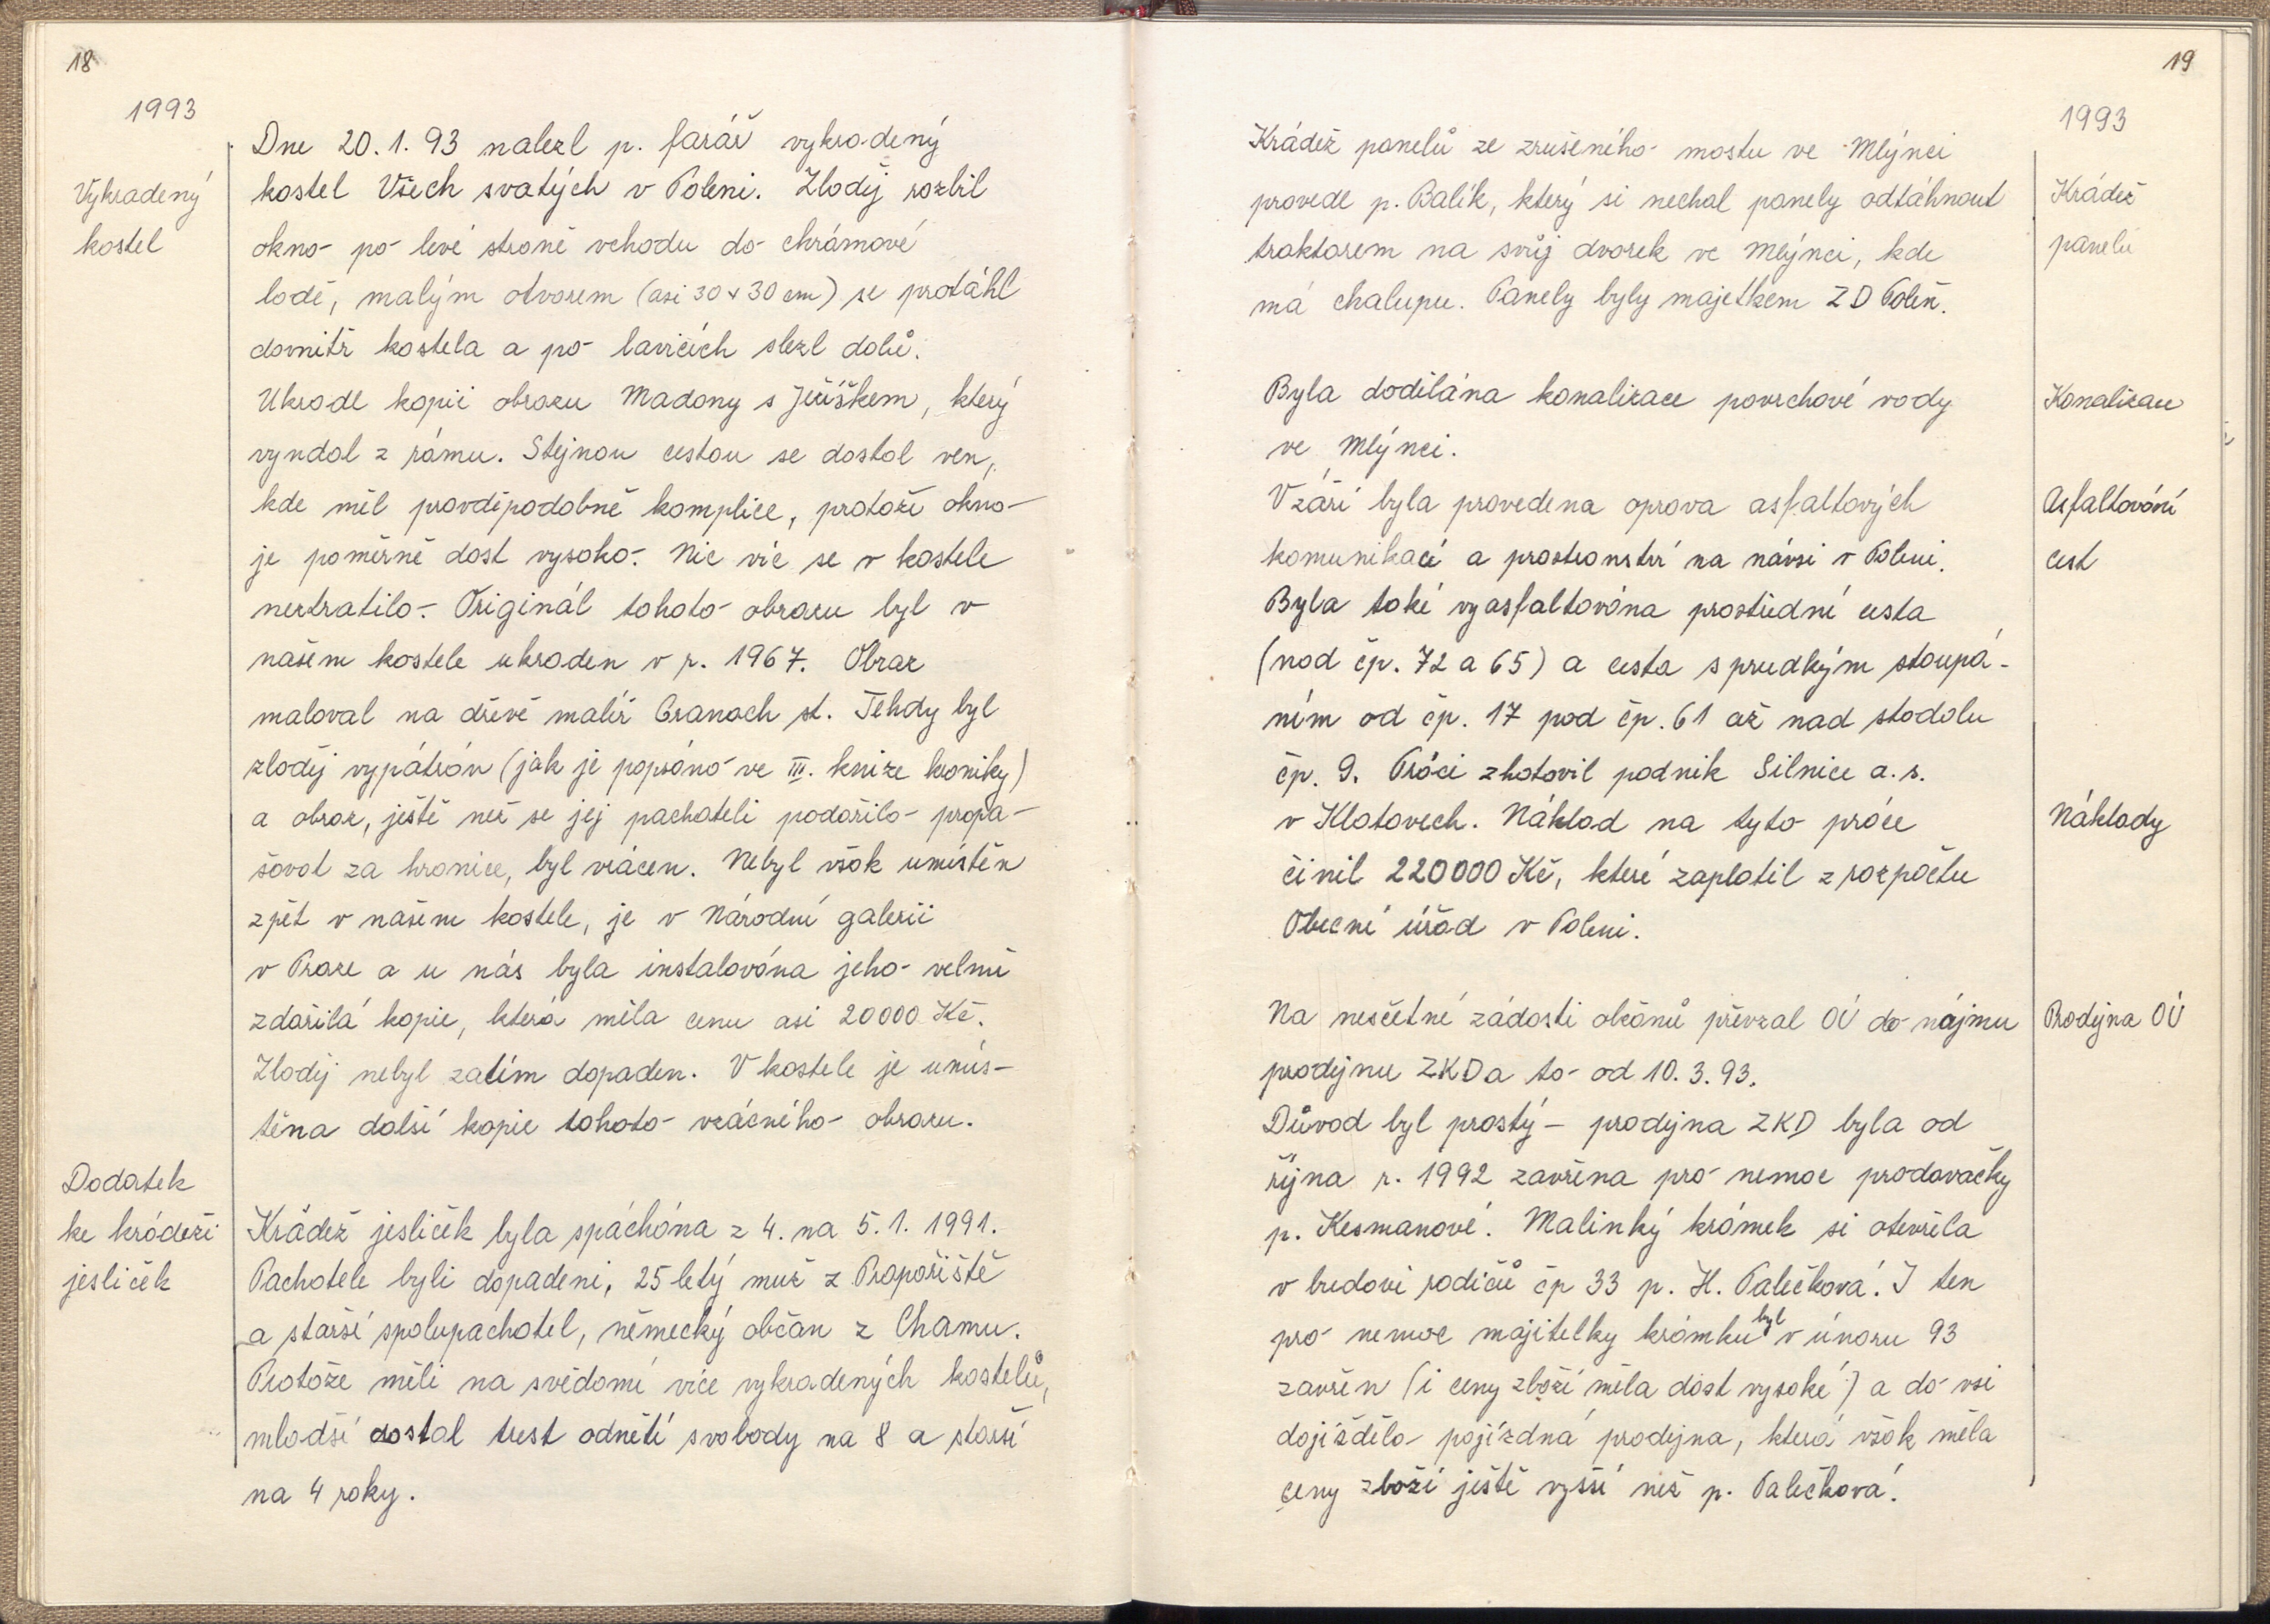 18
1993
Vykradený
kostel
Dne 20. 1. 93 nalezl p. farář vykradený
kostel Všech svatých v Poleni. Zloděj rozbil
okno po levé straně vchodu do chrámové
lodě, malým otvorem (asi 30 x 30 cm) se protáhl
dovnitř kostela a po lavicích slezl dolů.
Ukradl kopii obrazu Madony s Ježíškem, který
vyndal z rámu. Stejnou cestou se dostal ven,
kde měl pravděpodobně komplice, protože okno
je poměrně dost vysoko. Nic víc se v kostele
neztratilo. Originál tohoto obrazu byl v
našem kostele ukraden v r. 1967. Obraz
maloval na dřevě malíř Cranach st. Tehdy byl
zloděj vypátrán (jak je popsáno ve III. knize kroniky)
a obraz, ještě než se jej pachateli podařilo propa-
šovat za hranice, byl vrácen. Nebyl však umístěn
zpět v našem kostele, je v Národní galerii
v Praze a u nás byla instalována jeho velmi
zdařilá kopie, která měla cenu asi 20000 Kč.
Zloděj nebyl zatím dopaden. V kostele je umís-
těna další kopie tohoto vzácného obrazu.
Dodatek
ke krádeži
jesliček
Krádež jesliček byla spáchána z 4. na 5. 1. 1991.
Pachatele byli dopadeni, 25 letý muž z Prapořiště
a starší spolupachatel, německý občan z Chamu.
Protože měli na svědomí více vykradených kostelů,
mladší dostal trest odnětí svobody na 8 a starší
na 4 roky.
19
1993
Krádež panelů ze zrušeného mostu ve Mlýnci
provedl p. Balík, který si nechal panely odtáhnout
traktorem na svůj dvorek ve Mlýnci, kde
má chalupu. Panely byly majetkem ZD Poleň.
Krádež
panelů
Byla dodělána kanalizace povrchové vody
ve Mlýnci.
Kanalizace
V září byla provedena oprava asfaltových
komunikací a prostranství na návsi v Poleni.
Byla také vyasfaltována prostřední cesta
(nad čp. 72 a 65) a cesta s prudkým stoupá-
ním od čp. 17 pod čp. 61 až nad stodolu
čp. 9. Práci zhotovil podnik Silnice a. s.
v Klatovech. Náklad na tyto práce
činil 220000 Kč, které zaplatil z rozpočtu
Obecní úřad v Poleni.
Asfaltování
cest
Náklady
Na nesčetné žádosti občanů převzal OÚ do nájmu
prodejnu ZKD a to od 10. 3. 93.
Důvod byl prostý – prodejna ZKD byla od
října r. 1992 zavřena pro nemoc prodavačky
p. Kesmanové. Malinký krámek si otevřela
v budově rodičů čp 33 p. H. Palečková. I ten
pro nemoc majitelky krámku byl v únoru 93
zavřen (i ceny zboží měla dost vysoké) a do vsi
dojížděla pojízdná prodejna, která však měla
ceny zboží ještě vyšší než p. Palečková.
Prodejna OÚ